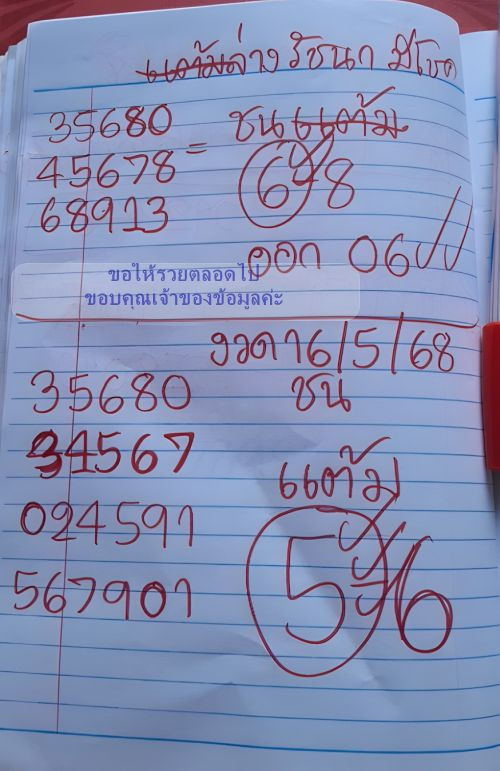 แต้มล่าง รัชนก มีโชค
35680 ชนแต้ม
45678 =
68913 6 8
ออก 06
ขอให้รวยตลอดไป
ขอบคุณเจ้าของข้อมูลค่ะ
งวด 16/5/68
35680 ชน
34567
แต้ม
024591
567901 5 6